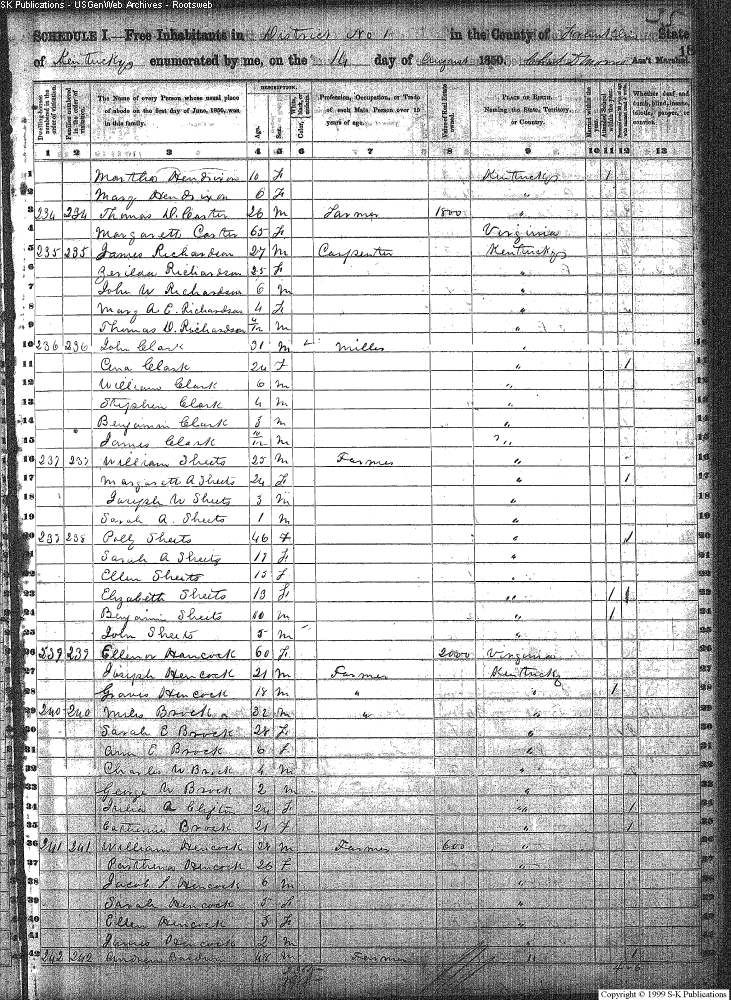 S-K Publications - USGenWeb Archives - Rootsweb
SCHEDULE I.—Free Inhabitants in District No 1 in the County of Franklin State
of Kentucky enumerated by me, on the 14 day of August 1850. Ass't Marshal.
DESCRIPTION.
The Name of every Person whose usual place of abode on the first day of June, 1850, was in this family.
Age. Sex.
Profession, Occupation, or Trade of each Male Person over 15 years of age.
Value of Real Estate owned.
PLACE OF BIRTH. Naming the State, Territory, or Country.
Whether deaf and dumb, blind, insane, idiotic, pauper, or convict.
1 2 3 4 5 6 7 8 9 10 11 12 13
1 Martha Hendrixon 10 F Kentucky 1
2 Mary Hendrixon 6 F "
3 234 234 Thomas D. Carter 26 M Farmer 1800 "
4 Margarett Carter 65 F Virginia
5 235 235 James Richardson 27 M Carpenter Kentucky
6 Richardson 25 F "
7 John W Richardson 6 M "
8 Mary A E. Richardson 4 F "
9 Thomas D. Richardson M "
10 236 236 John Clark 31 M Miller "
11 Clark 24 F " 1
12 William Clark 6 M "
13 Stephen Clark 4 M "
14 Benjamin Clark 3 M "
15 James Clark M "
16 237 237 William Sheets 25 M Farmer "
17 Margarett A Sheets 24 F " 1
18 Joseph W Sheets 3 M "
19 Sarah A. Sheets 1 M "
20 238 Polly Sheets 46 F " 1
21 Sarah A Sheets 17 F "
22 Ellen Sheets 15 F "
23 Elizabeth Sheets 13 F " 1 1
24 Benjamin Sheets 10 M " 1
25 John Sheets 5 M "
26 239 239 Ellenor Hancock 60 F 2000 Virginia
27 Joseph Hencock 21 M Farmer Kentucky
28 Graves Hencock 18 M " " 1
29 240 240 Miles Brock 32 M " "
30 Sarah E Brock 28 F "
31 Ann E Brock 6 F "
32 Charles W Brock 4 M "
33 George W Brock 2 M "
34 Julia A Clifton 24 F " 1
35 Catherine Brock 21 F " 1
36 241 241 William Hencock 28 M Farmer 600 "
37 Hencock 26 F "
38 Jacob S. Hencock 6 M "
39 Sarah Hencock 5 F "
40 Ellen Hencock 3 F "
41 James Hencock 2 M "
42 242 242 Andrew Baldwin 48 M Farmer " 1
Copyright © 1999 S-K Publications